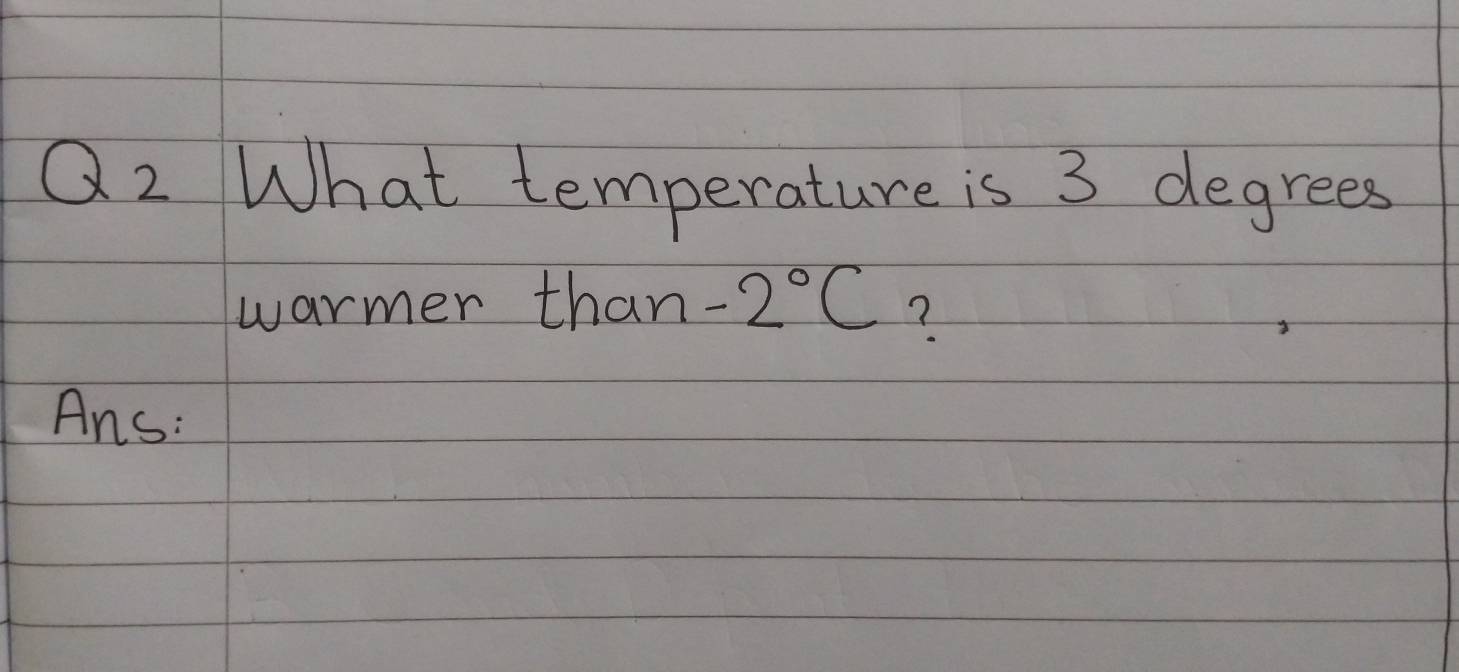 Q2 What temperature is 3 degrees
warmer than -2°C?
Ans: